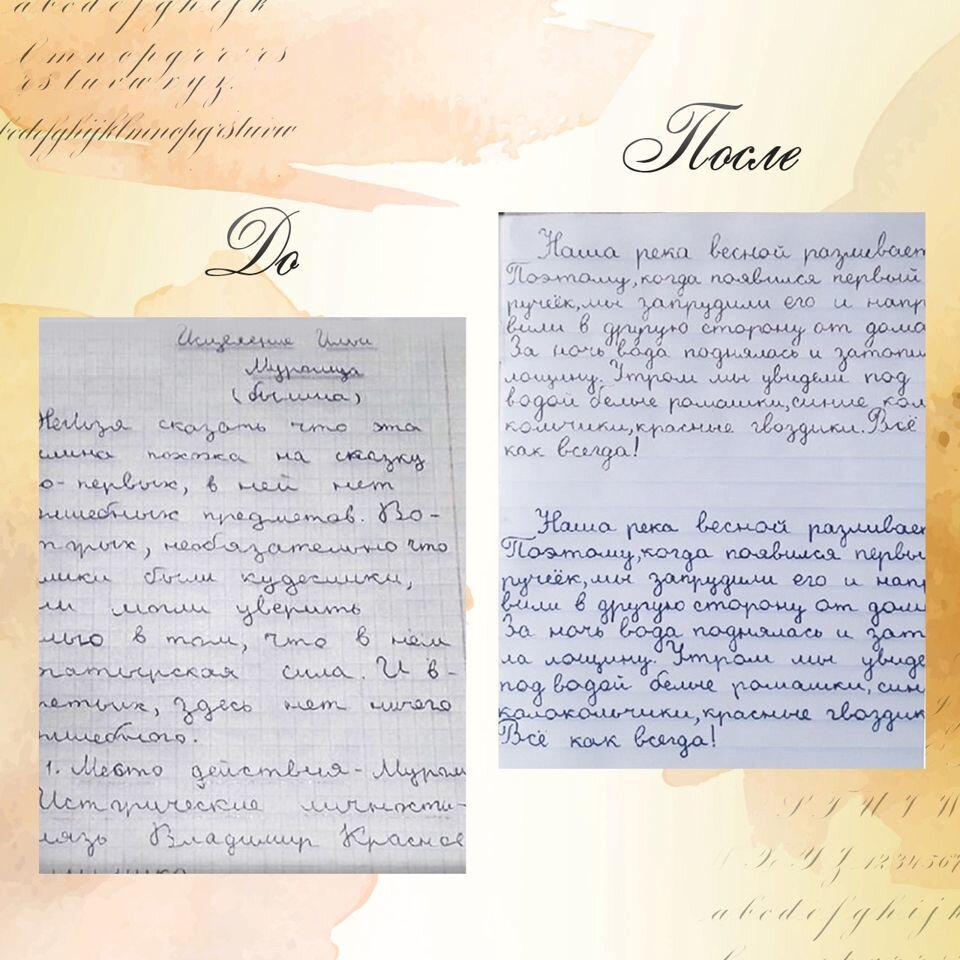 a b c d e f g h i j k
l m n o p q r r r s
r s t u v w x y z.
bcdefghijklmnopqrstuvw
До
Исцеление Ильи
Муромца
(былина)
Нельзя сказать что эта
лина похожа на сказку
о-первых, в ней нет
лшебных предметов. Во-
торых, необязательно что
лики были кудесники,
ни могли уверить
лью в том, что в нём
гатырская сила. И в-
ретьих, здесь нет ничего
лшебного.
1. Место действия - Муром
Исторические личности-
нязь Владимир Красное
После
Наша река весной разливает
Поэтому, когда появился первый
ручеёк, мы запрудили его и напр
вили в другую сторону от дома
За ночь вода поднялась и затопи
лощину. Утром мы увидели под
водой белые ромашки, синие кол
кольчики, красные гвоздики. Всё
как всегда!
Наша река весной разливает
Поэтому, когда появился первы
ручеёк, мы запрудили его и напр
вили в другую сторону от дом
За ночь вода поднялась и зат
ла лощину. Утром мы увиде
под водой белые ромашки, син
колокольчики, красные гвоздик
Всё как всегда!
1234567
a b c d e f g h i j k